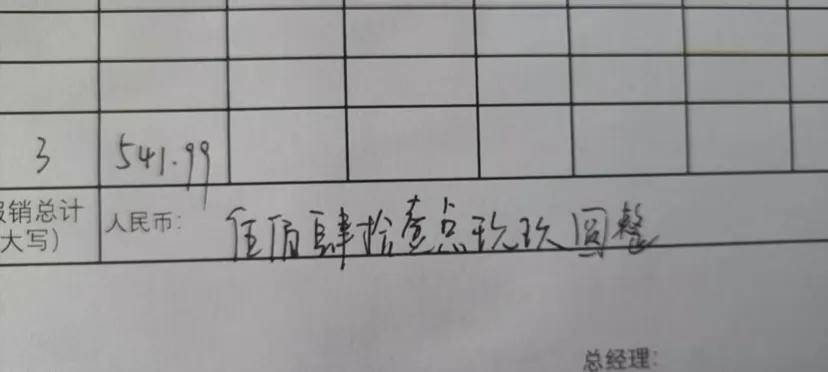 3 541.99
报销总计 人民币: 伍佰肆拾壹点玖玖圆整
大写)
总经理: